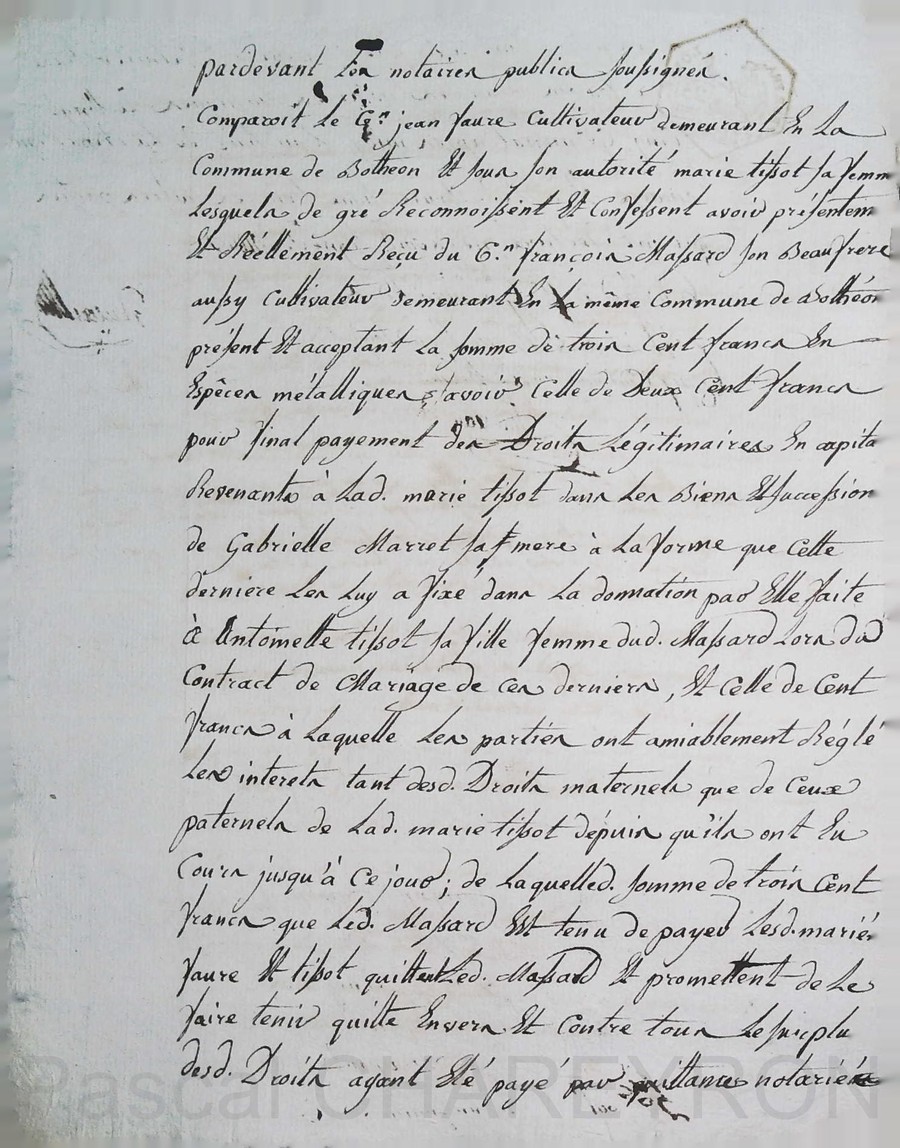 pardevant Les notaires publics soussignés.
Comparoit Le C.en jean faure Cultivateur demeurant En La
Commune de Botheon Et sous son autorité marie tissot sa femme
Lesquels de gré Reconnoissent Et Confessent avoir présentem
Et Réellement Reçu du C.en françois Massard son Beaufrere
aussy Cultivateur demeurant En La même Commune de Bothéon
présent Et acceptant La somme de trois Cent francs En
Espêces métalliques, sçavoir Celle de Deux Cent francs
pour final payement des Droits Légitimaires En capita
Revenants à Lad. marie tissot dans Les Biens Et succession
de Gabrielle Marret sa mere à La forme que Cette
derniere Les Luy a fixé dans La donnation par Elle faite
à Antoinette tissot sa fille femme dud. Massard Lors du
Contract de Mariage de ces derniers, Et Celle de Cent
francs à Laquelle Les parties ont amiablement Réglé
Les interets tant desd. Droits maternels que de Ceux
paternels de Lad. marie tissot dépuis qu'ils ont Eu
Cours jusqu'à Ce jour; de Laquelled. somme de trois Cent
francs que Led. Massard Est tenu de payer Lesd. mariés
faure Et tissot quittent Led. Massard Et promettent de Le
faire tenir quitte Envers Et Contre tous Le surplu
desd. Droits ayant Eté payé par quittances notariées
Pascal CHAREYRON